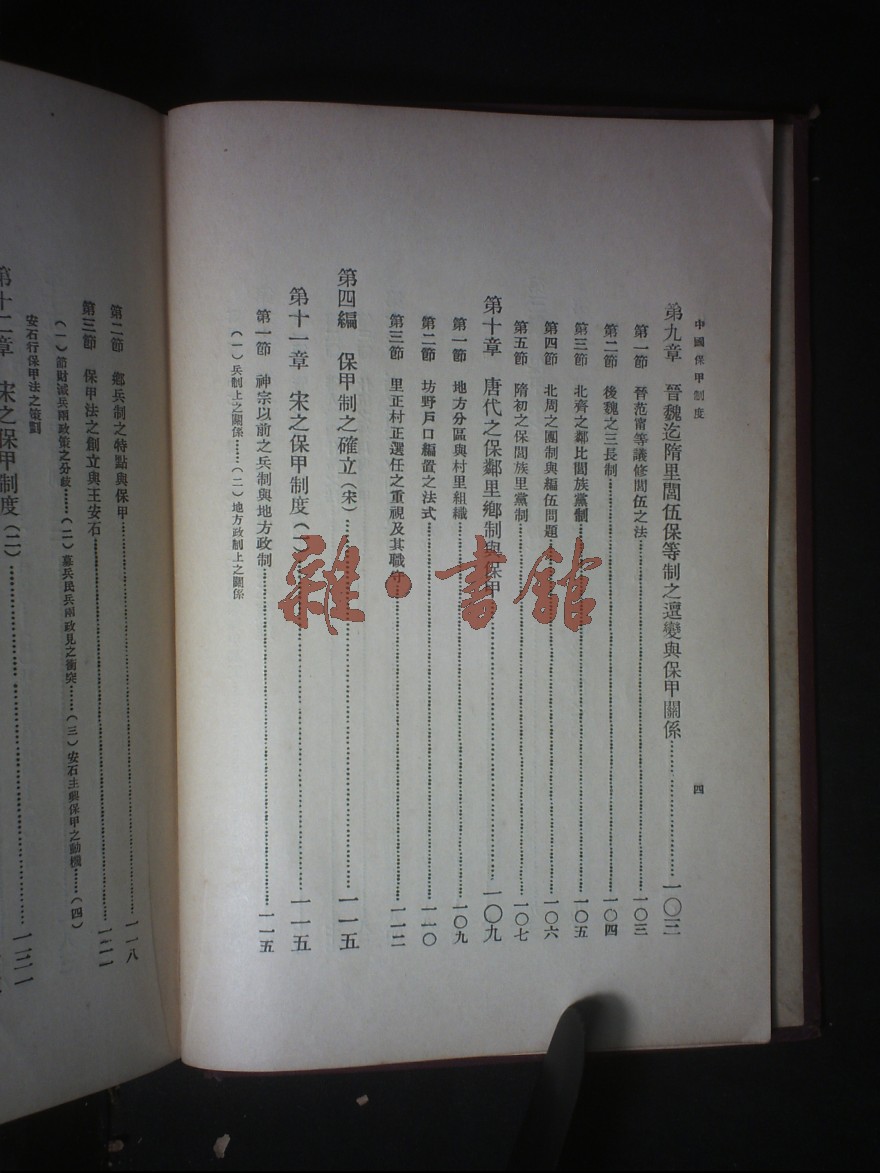 中國保甲制度
四
第九章 晉魏迄隋里閭伍保等制之遞變與保甲關係……一〇三
第一節 晉范甯等議修閭伍之法……一〇三
第二節 後魏之三長制……一〇四
第三節 北齊之鄰比閭族黨制……一〇五
第四節 北周之團制與編伍問題……一〇六
第五節 隋初之保閭族里黨制……一〇七
第十章 唐代之保鄰里鄉制與保甲……一〇九
第一節 地方分區與村里組織……一〇九
第二節 坊野戶口編置之法式……一一〇
第三節 里正村正選任之重視及其職守……一一二
第四編 保甲制之確立(宋)……一一五
第十一章 宋之保甲制度(一)……一一五
第一節 神宗以前之兵制與地方政制……一一五
(一)兵制上之關係……(二)地方政制上之關係
第二節 鄉兵制之特點與保甲……一一八
第三節 保甲法之創立與王安石……一二一
(一)節財減兵兩政策之分歧……(二)募兵民兵兩政見之衝突……(三)安石主興保甲之動機……(四)
安石行保甲法之策劃
第十二章 宋之保甲制度(二)……一三一
雜·書館